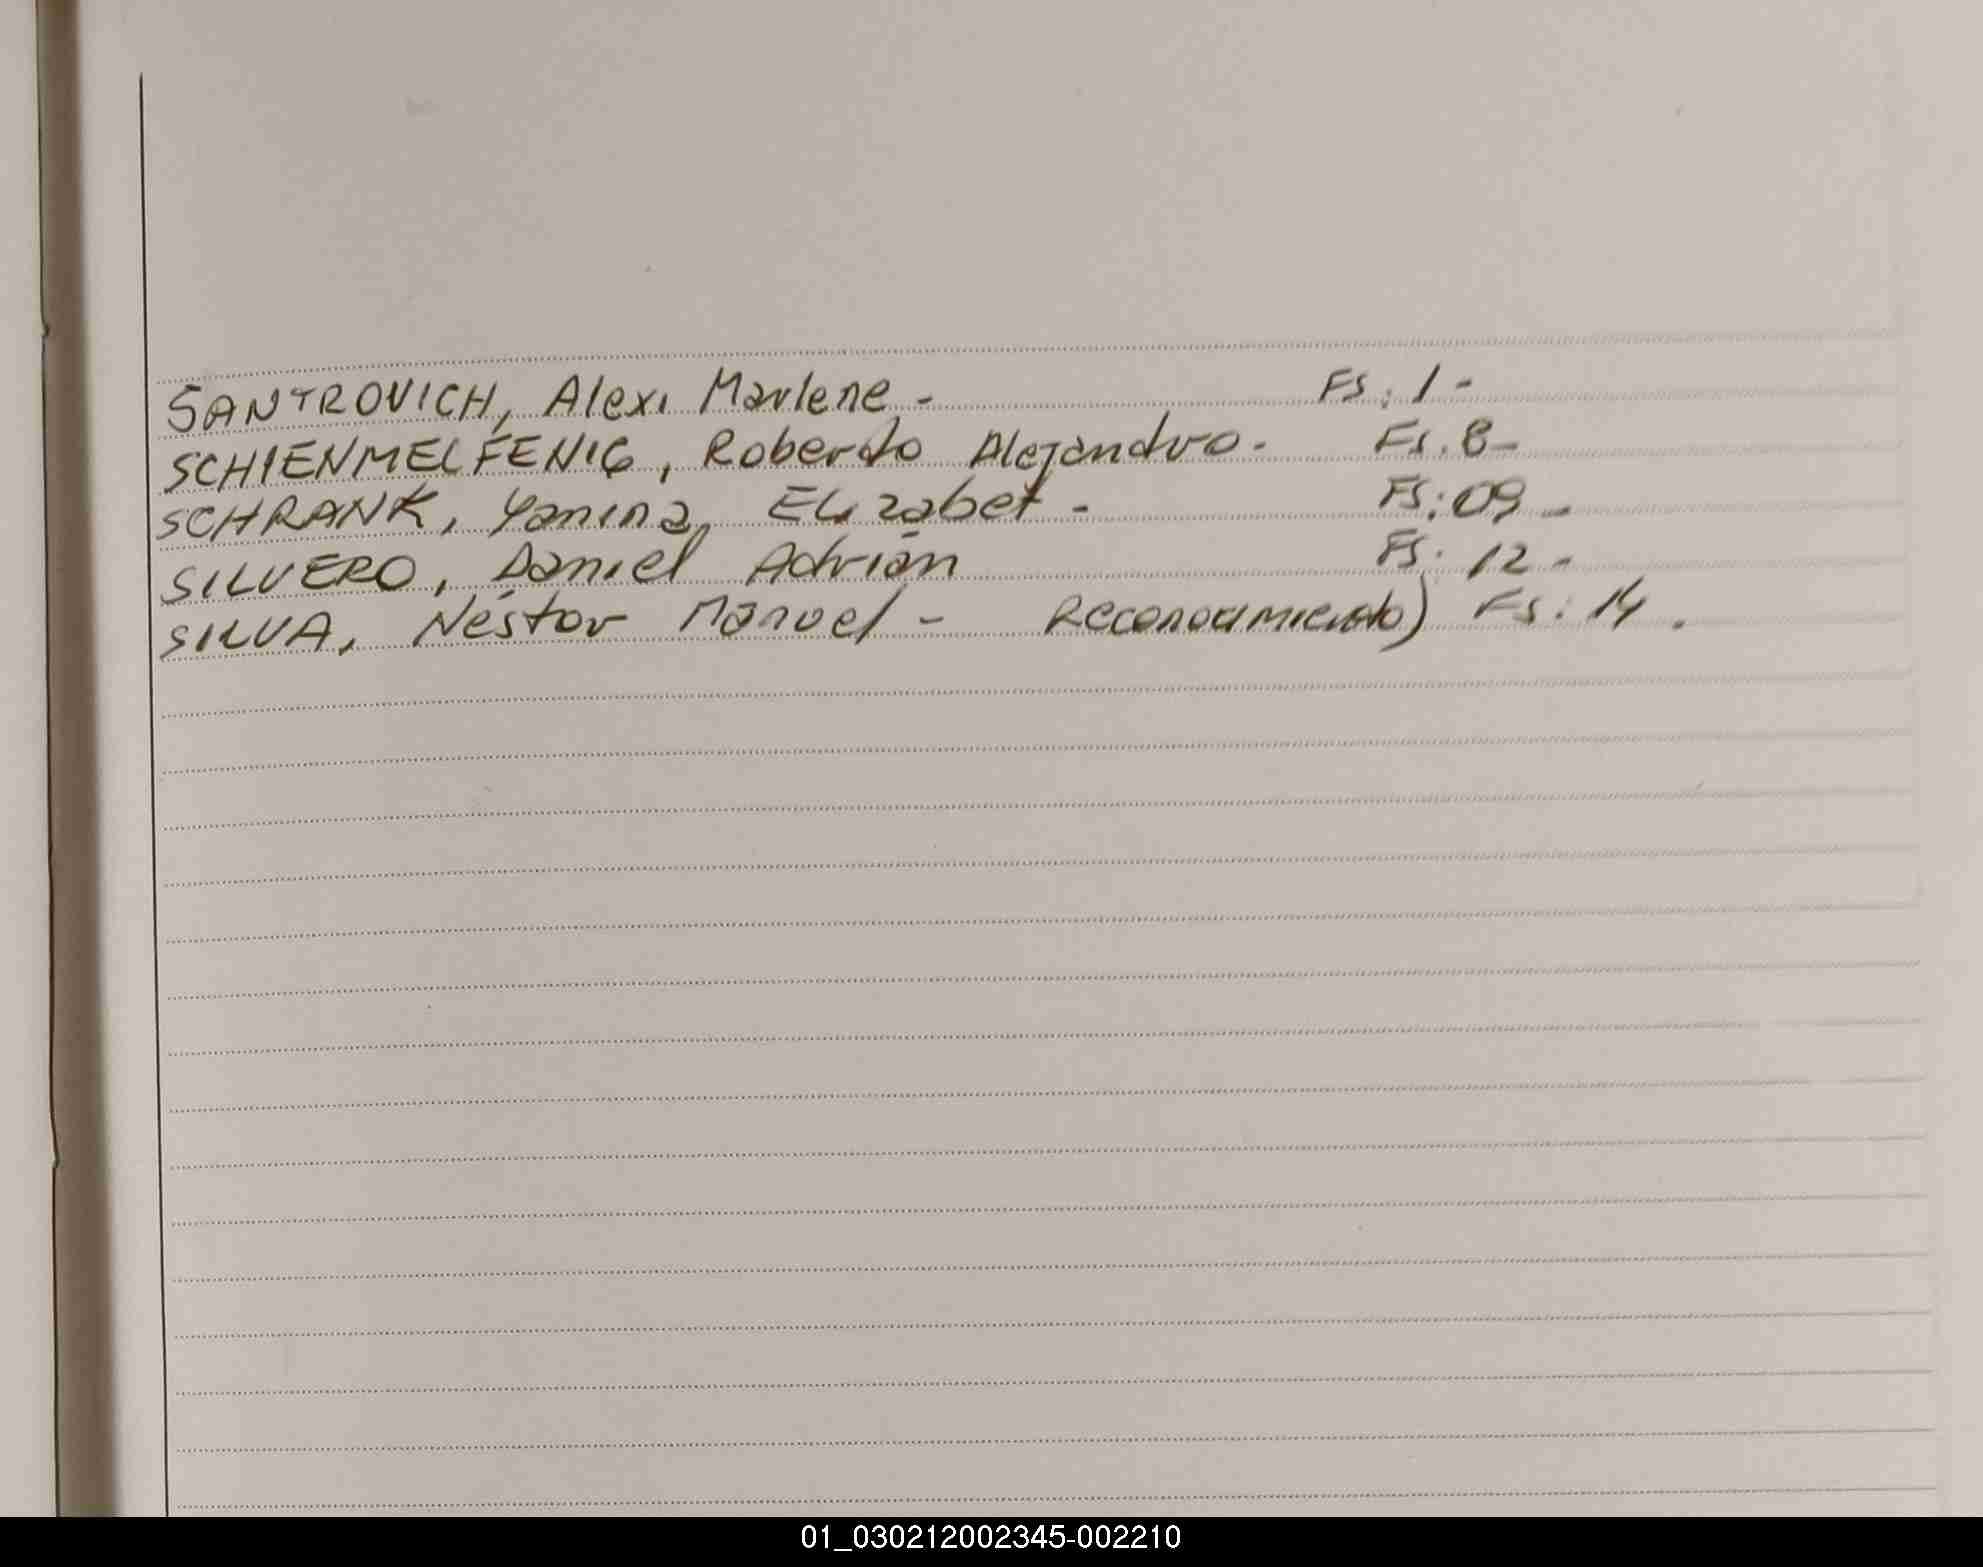 SANTROVICH, Alexi Marlene - Fs: 1 -
SCHIENMELFENIG, Roberto Alejandro. Fs. 8 -
SCHRANK, Yanina Elizabet - Fs: 09 -
SILVERO, Daniel Adrián Fs. 12 -
SILVA, Néstor Manuel - Reconocimiento) Fs: 14.
01_030212002345-002210